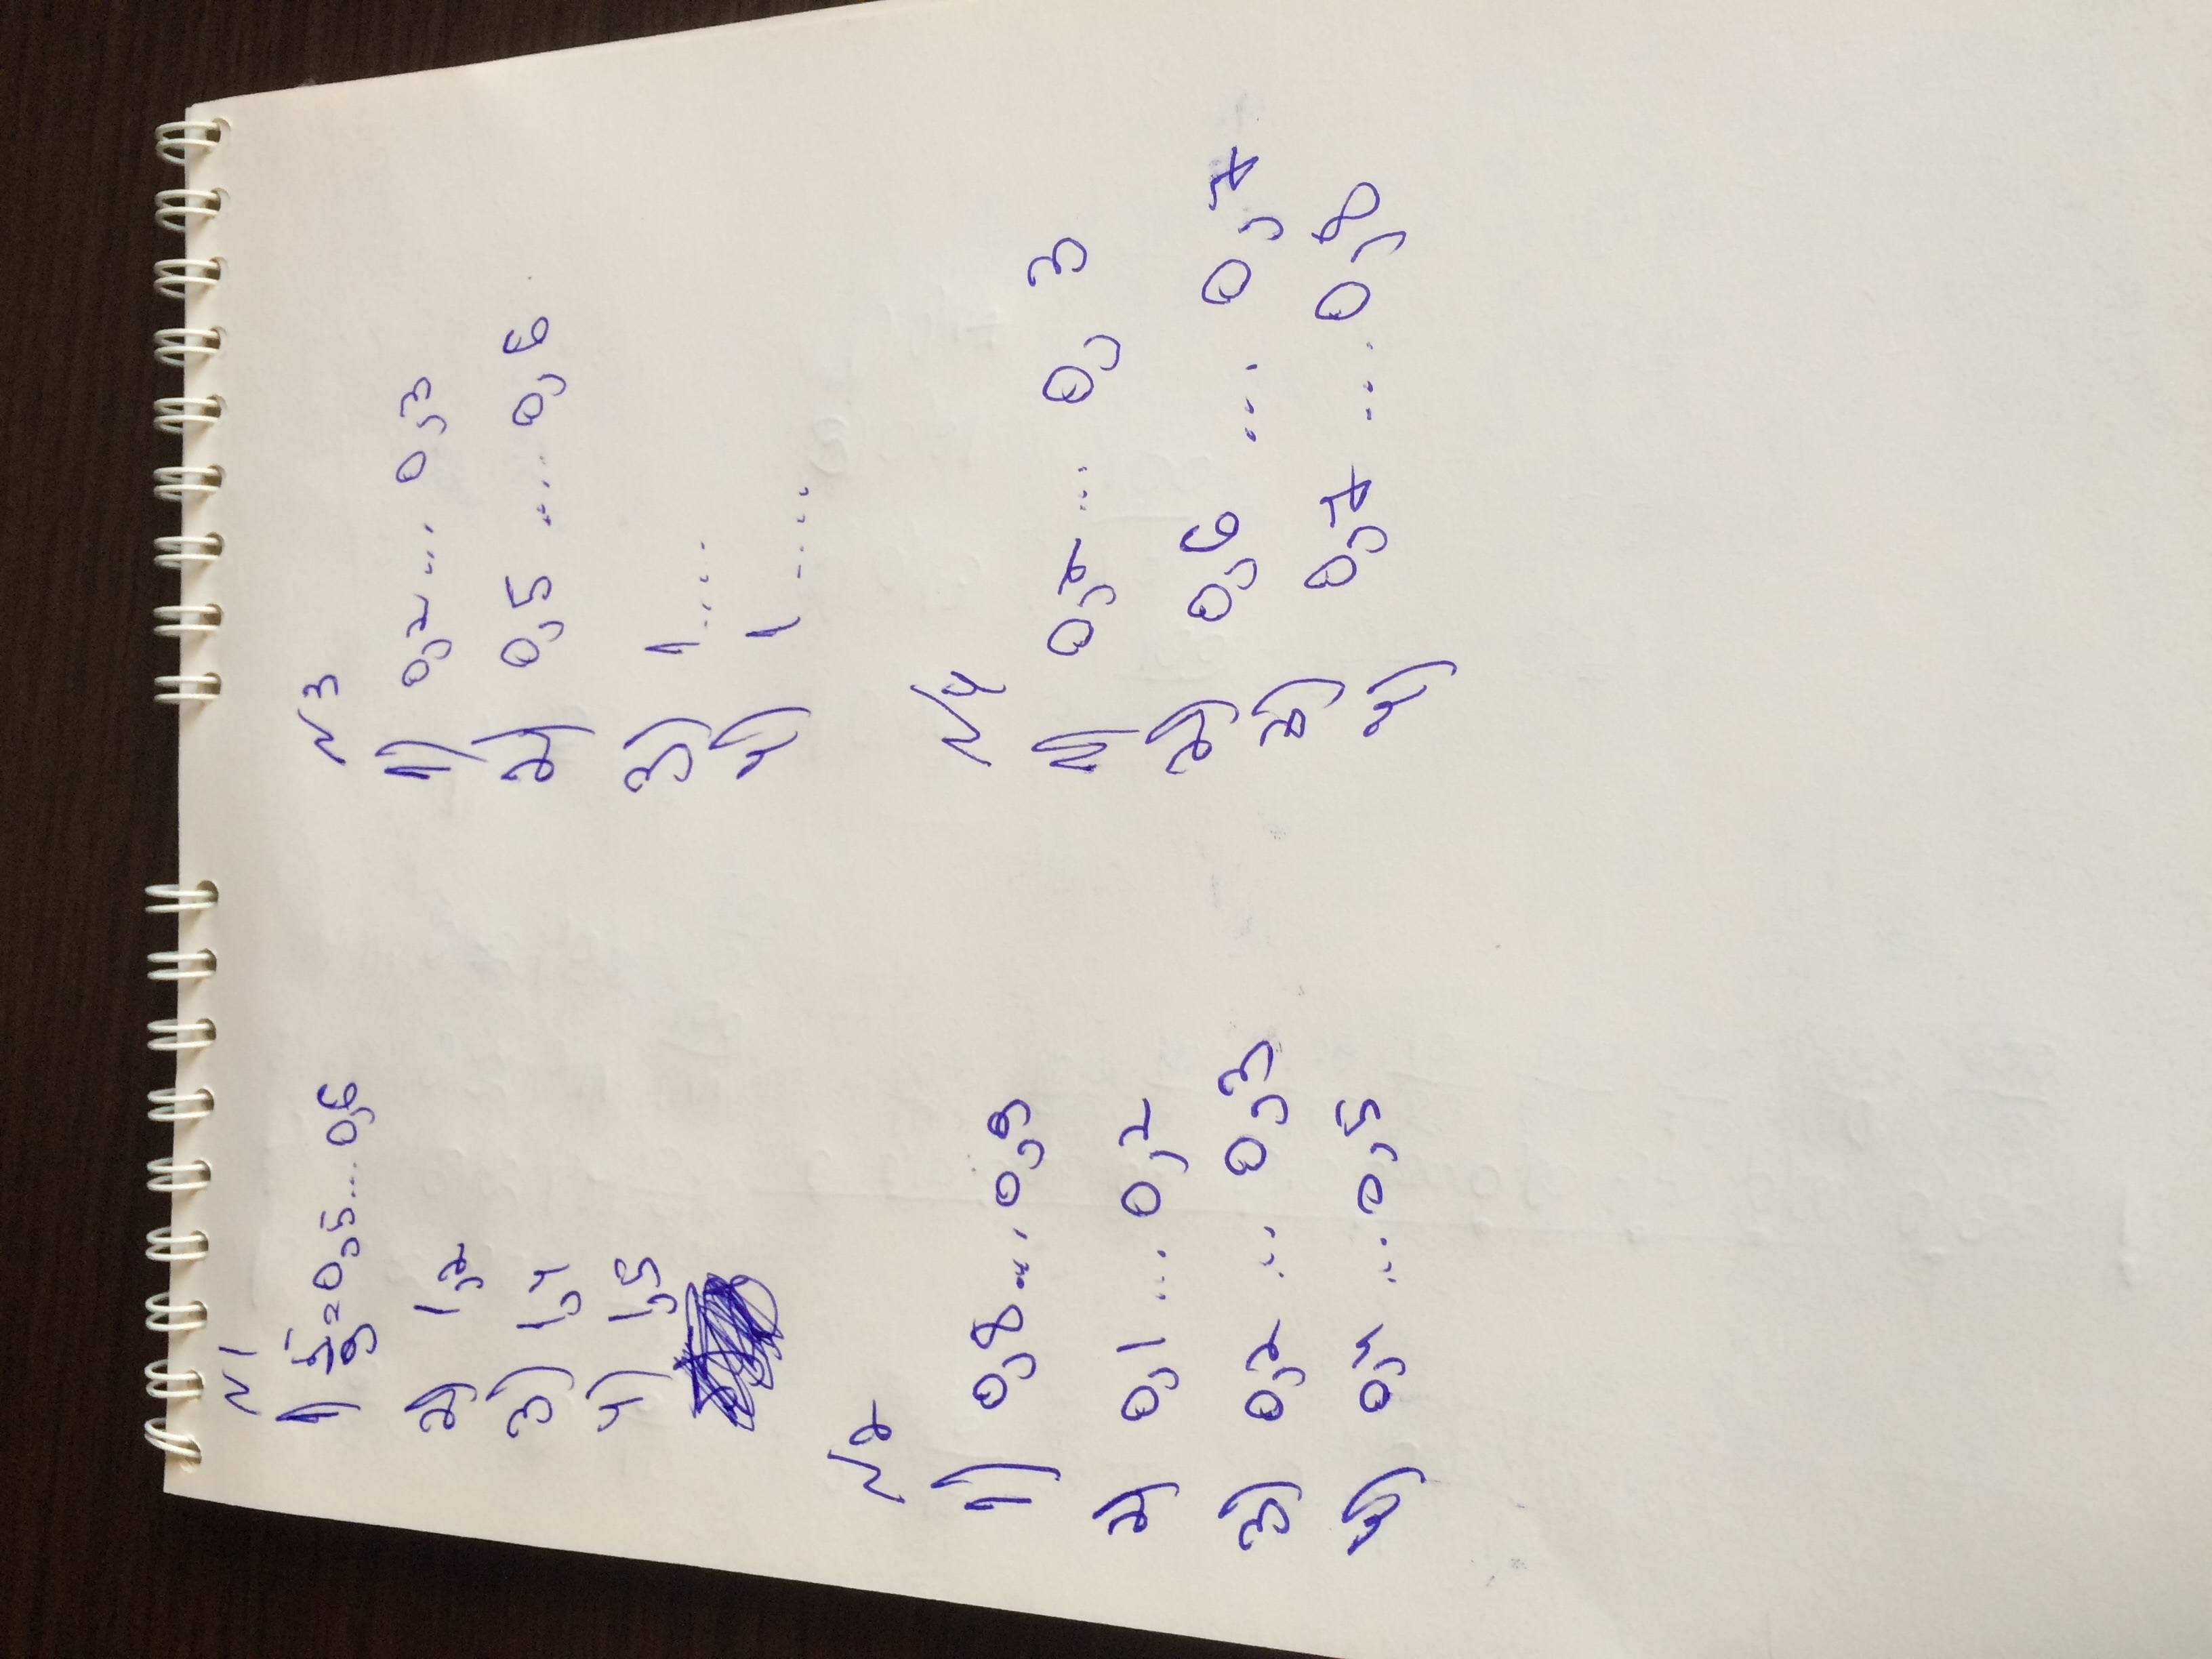 N1
1) 5/9=0,55...0,6
2) 1,2
3) 1,4
4) 1,5
N2
1) 0,8....0,9
2) 0,1...0,2
3) 0,2...0,3
4) 0,4...0,5
N3
1) 0,2... 0,3
2) 0,5 ... 0,6
3) 1....
4) 1....
N4
1) 0,2... 0,3
2) 0,6 ... 0,7
3) 0,7 ... 0,8
4)